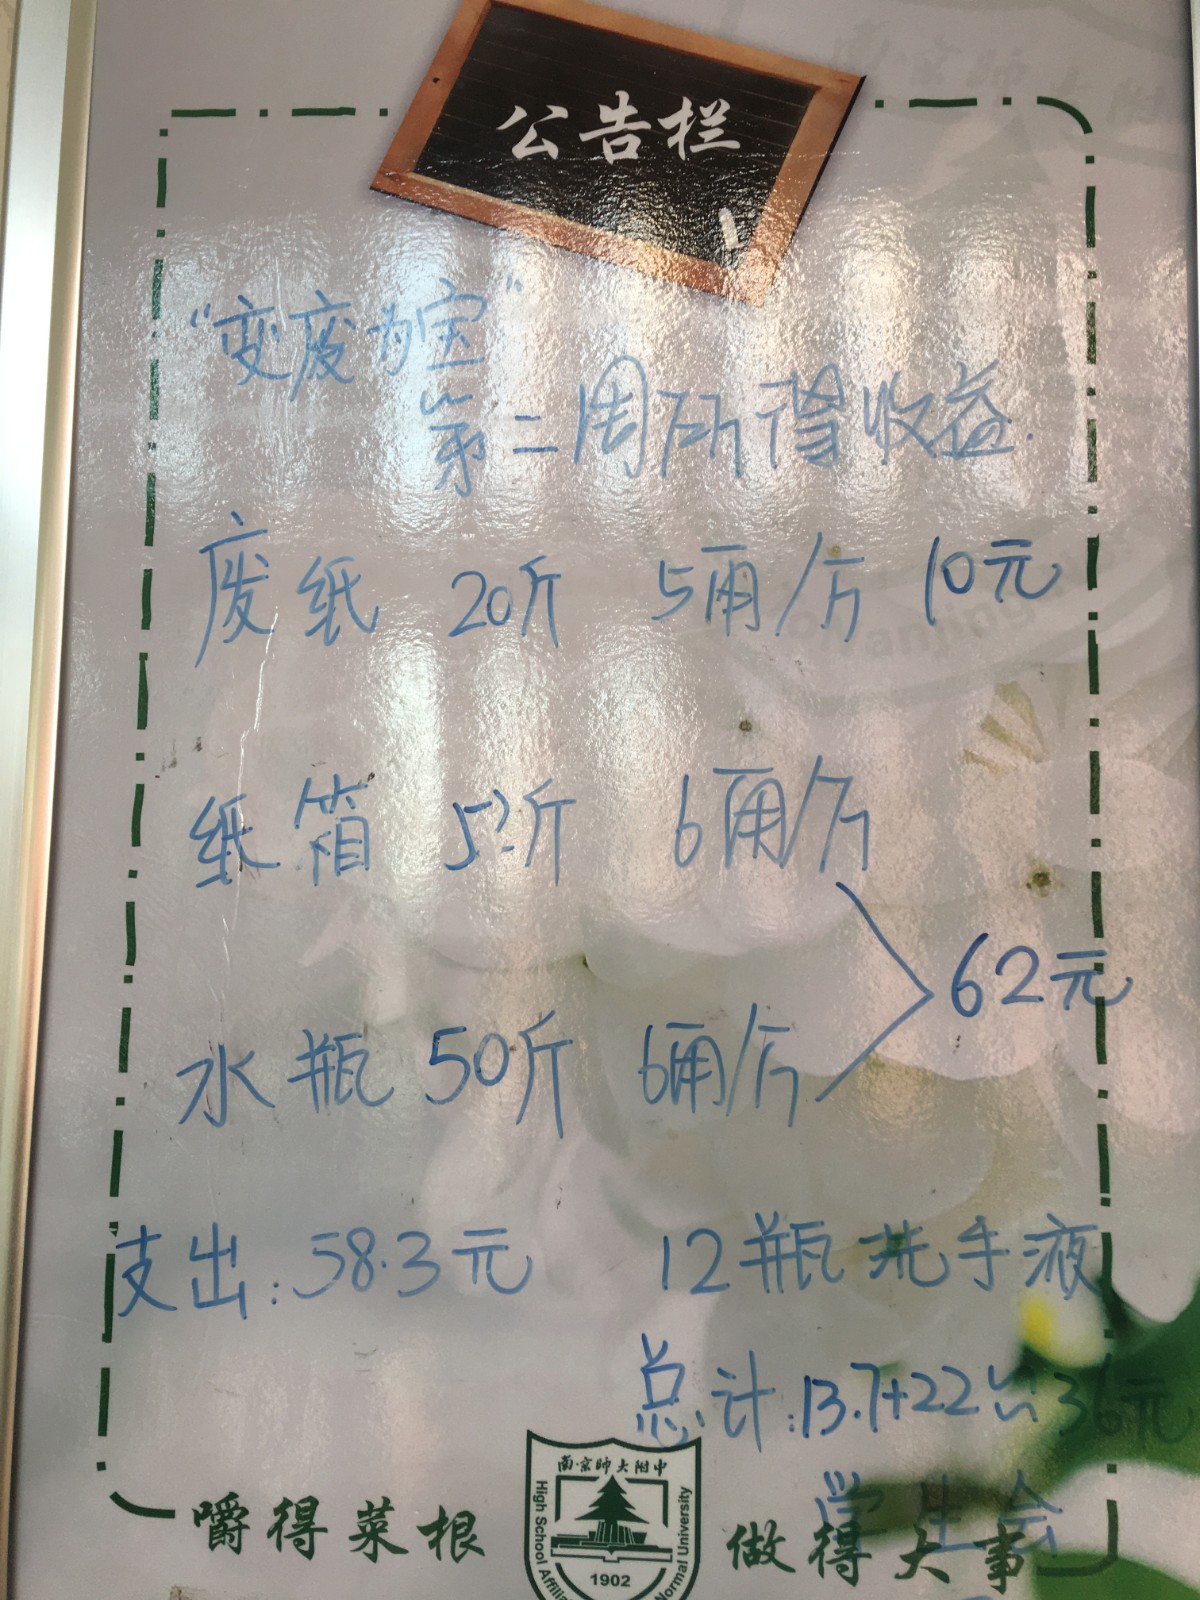 公告栏
“变废为宝”
第二周所得收益.
废纸 20斤 5角/斤 10元
纸箱 斤 6角/斤
62元
水瓶 50斤 6角/斤
支出:58.3元 12瓶洗手液
总计:13.7+22≈36元
学生会
嚼得菜根 做得大事
南京师大附中
High School Affilia Normal University
1902